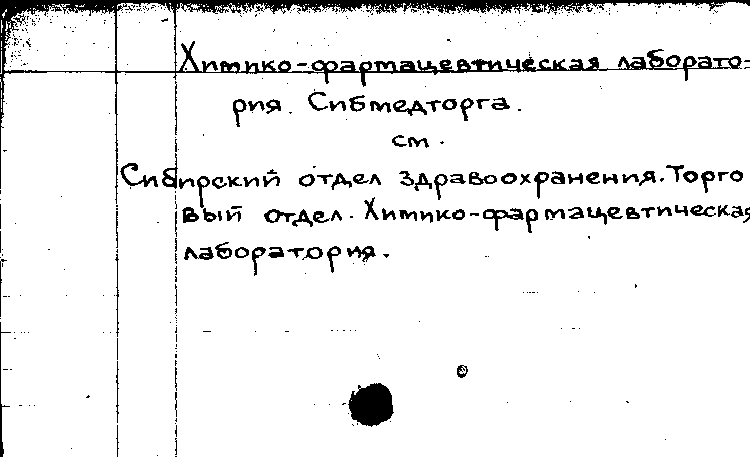 Химико-фармацевтическая лаборато-
рия. Сибмедторга.
см.
Сибирский отдел здравоохранения. Торго
вый отдел. Химико-фармацевтическая
лаборатория.